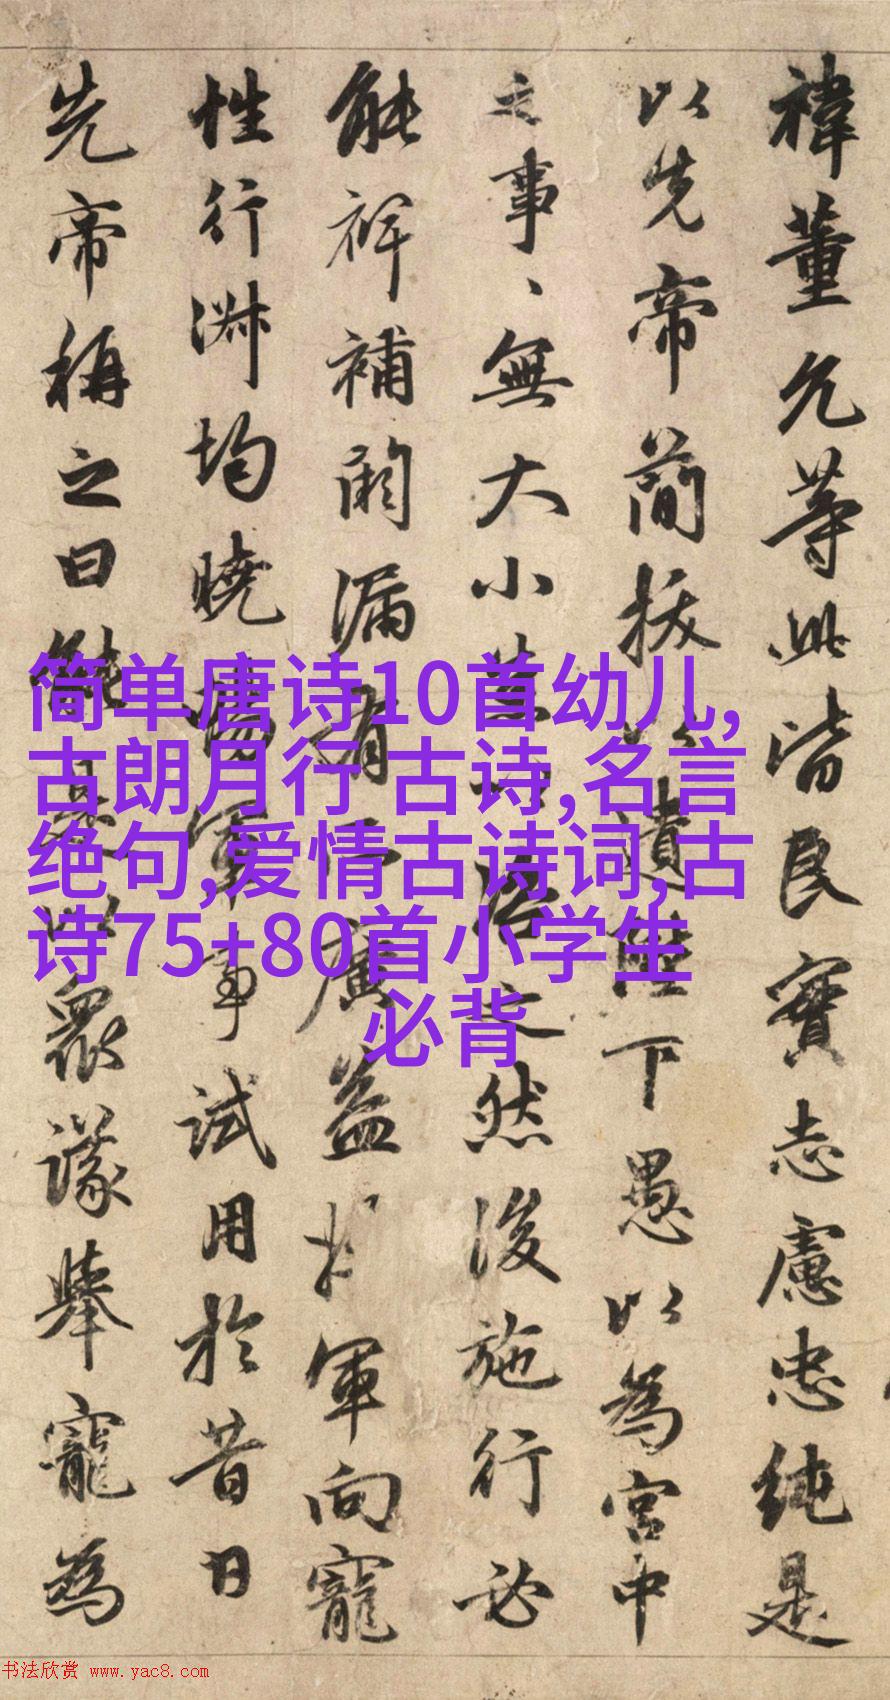 禕董允等此皆良實志慮忠純是
以先帝簡拔以遺陛下愚以為宮中
之事、無大小悉以咨之然後施行必
能裨補闕漏有所廣益將軍向寵
性行淑均曉暢軍事試用於昔日
先帝稱之曰能是以眾議舉寵為
简单唐诗10首幼儿,
古朗月行 古诗,名言
绝句,爱情古诗词,古
诗75+80首小学生
必背
书法欣赏 www.yac8.com